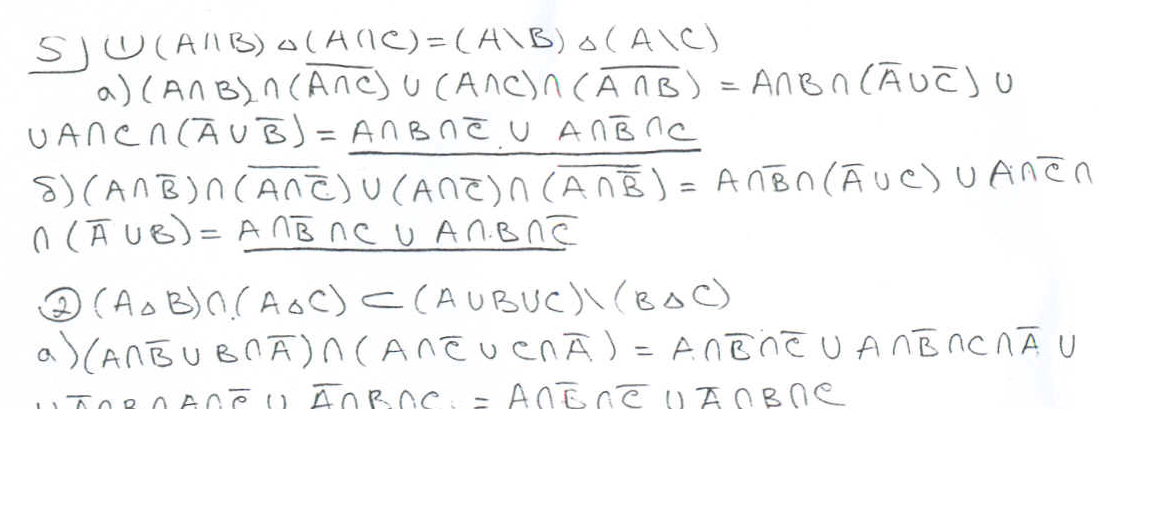 5) ① (A∩B) △ (A∩C) = (A\B) △ (A\C)
а) (A∩B)∩(A̅∩̅C̅) ∪ (A∩C)∩(A̅∩̅B̅) = A∩B∩(A̅∪C̅) ∪
∪ A∩C∩(A̅∪B̅) = A∩B∩C̅ ∪ A∩B̅∩C
б) (A∩B̅)∩(\overline{A∩C̅}) ∪ (A∩C̅)∩(\overline{A∩B̅}) = A∩B̅∩(A̅∪C) ∪ A∩C̅∩
∩(A̅∪B) = A∩B̅∩C ∪ A∩B∩C̅
② (A△B)∩(A△C) ⊂ (A∪B∪C)\(B△C)
а) (A∩B̅ ∪ B∩A̅)∩(A∩C̅ ∪ C∩A̅) = A∩B̅∩C̅ ∪ A∩B̅∩C∩A̅ ∪
∪ A̅∩B∩A∩C̅ ∪ A̅∩B∩C = A∩B̅∩C̅ ∪ A̅∩B∩C